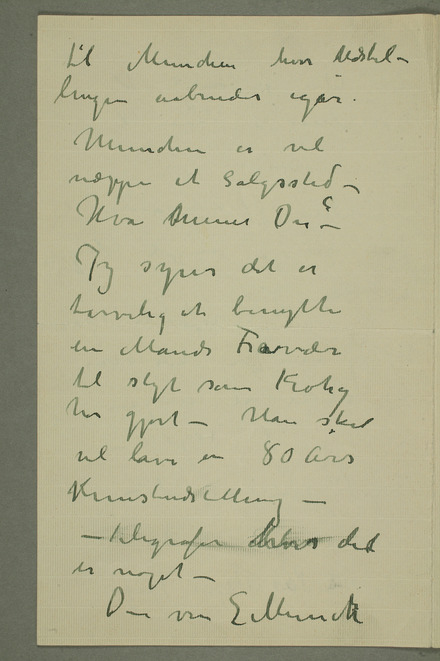 til München hvor Udstil–
lingen aabnedes igår.
München er vel
næppe et Salgssted –
Hva mener De? –
Jeg synes det er
tarvelig at benytte
en Mands Fravær
til sligt som Krohg
har gjort – Han skal
vel lave en 80 Års
Kunstudstilling –
– telegrafer det
er noget –
Din ven E Munch